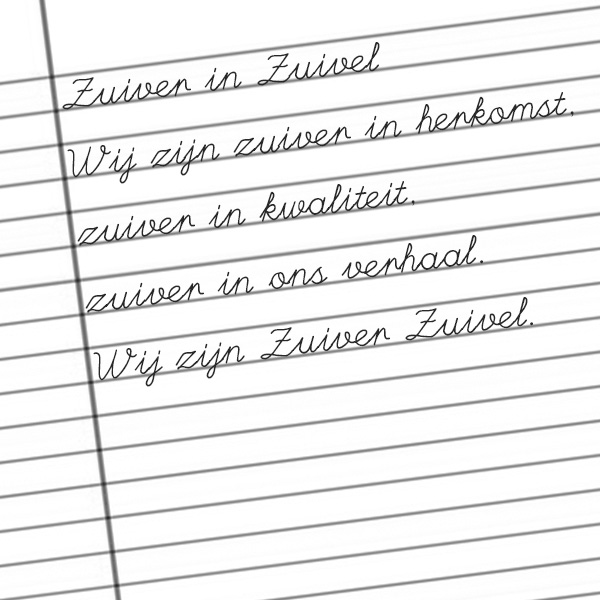 Zuiver in Zuivel
Wij zijn zuiver in herkomst,
zuiver in kwaliteit,
zuiver in ons verhaal.
Wij zijn Zuiver Zuivel.